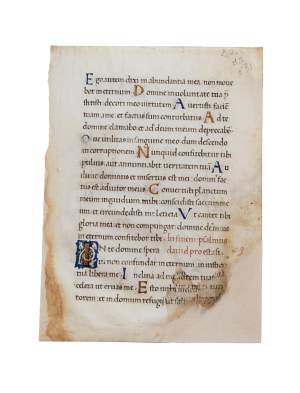 Ego autem dixi in abundantia mea non move
bor in eternum Domine in voluntate tua p
stitisti decori meo virtutem Avertisti faciē
tuam a me et factus sum conturbatus Ad te
domine clamabo et ad deum meum deprecabor
Que utilitas in sanguine meo dum descendo
in corruptionem Nunquid confitebitur tibi
pulvis aut annunciabit veritatem tuā Au
divit dominus et misertus est mei dominus fac
tus est adiutor meus Convertisti planctum
meum in gaudium mihi conscidisti saccum meum
et circumdedisti me leticia Ut cantet tibi
gloria mea et non compungar domine deus meus
in eternum confitebor tibi In finem psalmus
IN te domine speravi david pro extasi
non confundar in eternum in iusticia
tua libera me Inclina ad me aurem tuam
accelera ut eruas me Esto mihi in deum
torem et in domum refugii ut salvum